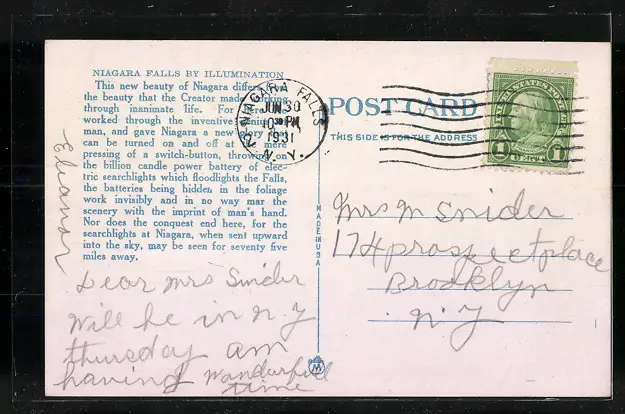 NIAGARA FALLS BY ILLUMINATION
This new beauty of Niagara differs
the beauty that the Creator made working
through inanimate life. For
worked through the inventive genius
man, and gave Niagara a new glory
can be turned on and off at mere
pressing of a switch-button, throwing on
the billion candle power battery of elec-
tric searchlights which floodlights the Falls,
the batteries being hidden in the foliage
work invisibly and in no way mar the
scenery with the imprint of man's hand.
Nor does the conquest end here, for the
searchlights at Niagara, when sent upward
into the sky, may be seen for seventy five
miles away.
Eleanor
Dear Mrs Snider
Will be in N.Y
thursday am
having Wonderfull
time
NIAGARA FALLS
JUN 30
10 30 PM
1931
N. Y.
MADE IN USA
POST CARD
THIS SIDE IS FOR THE ADDRESS
UNITED STATES POSTAGE
1 CENT 1
Mrs M Snider
174 prospect place
Brooklyn
N.Y